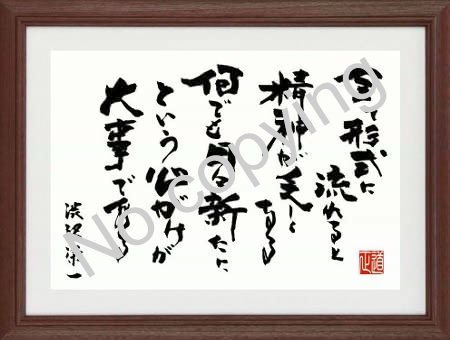 全て形式に
流れると
精神が乏しく
なる
何でも日々新たに
という心がけが
大事である
渋沢栄一
No copying